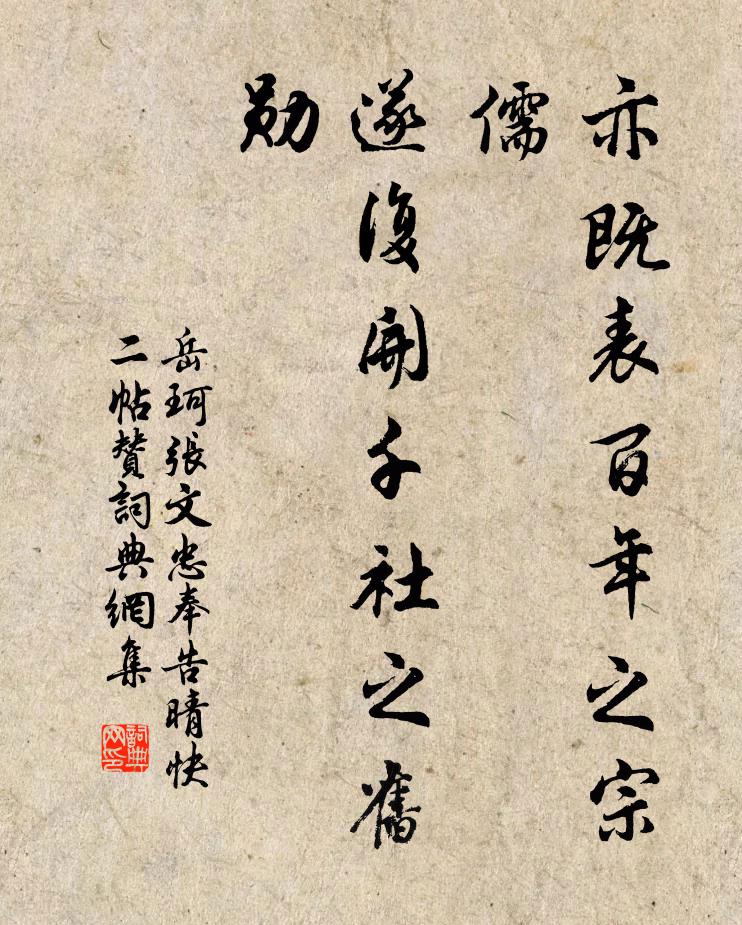 亦既表百年之宗
儒
遂復開千社之舊
勋
岳珂張文忠奉告晴快
二帖贊詞典網集
詞典網印